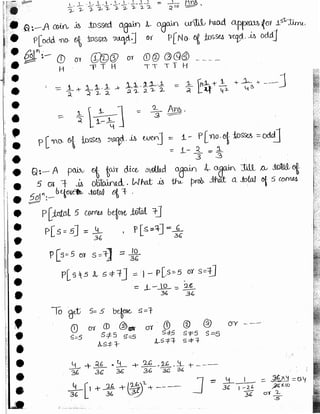 1/2 · 1/2 · 1/2 · 1/2 · 1/2 · 1/2 = 1/2^10 Ans.
Q:- A coin is tossed again & again until head appears for 1st time.
P[odd no of tosses reqd.] or P[No. of tosses reqd. is odd]
Sol^n:- ① or ①②③ or ①②③④⑤
H T T H T T T T H
= 1/2 + 1/2·1/2·1/2 + 1/2·1/2·1/2·1/2·1/2 = 1/2 [ 1 + 1/4 + 1/4^2 + 1/4^3 + ---- ]
= 1/2 [ 1/(1 - 1/4) ] = 2/3 Ans.
P[no. of tosses reqd. is even] = 1 - P[no. of tosses = odd]
= 1 - 2/3 = 1/3
Q:- A pair of fair dice rolled again & again till a total of
5 or 7 is obtained. What is the prob that a total of 5 comes
before total of 7.
Sol^n:-
P[total 5 comes before total 7]
P[S=5] = 4/36 , P[S=7] = 6/36
P[S=5 or S=7] = 10/36
P[S≠5 & S≠7] = 1 - P[S=5 or S=7]
= 1 - 10/36 = 26/36
To get S=5 before S=7
① or ① ② or ① ② ③ or ----
S=5 S≠5 S=5 S≠5 S≠5 S=5
& S≠7 & S≠7 S≠7
4/36 + 26/36 · 4/36 + 26/36 · 26/36 · 4/36 + ----
4/36 [ 1 + 26/36 + (26/36)^2 + ---- ] = 4/36 · 1/(1 - 26/36) = 36×4/36×10 = 0.4
or 2/5